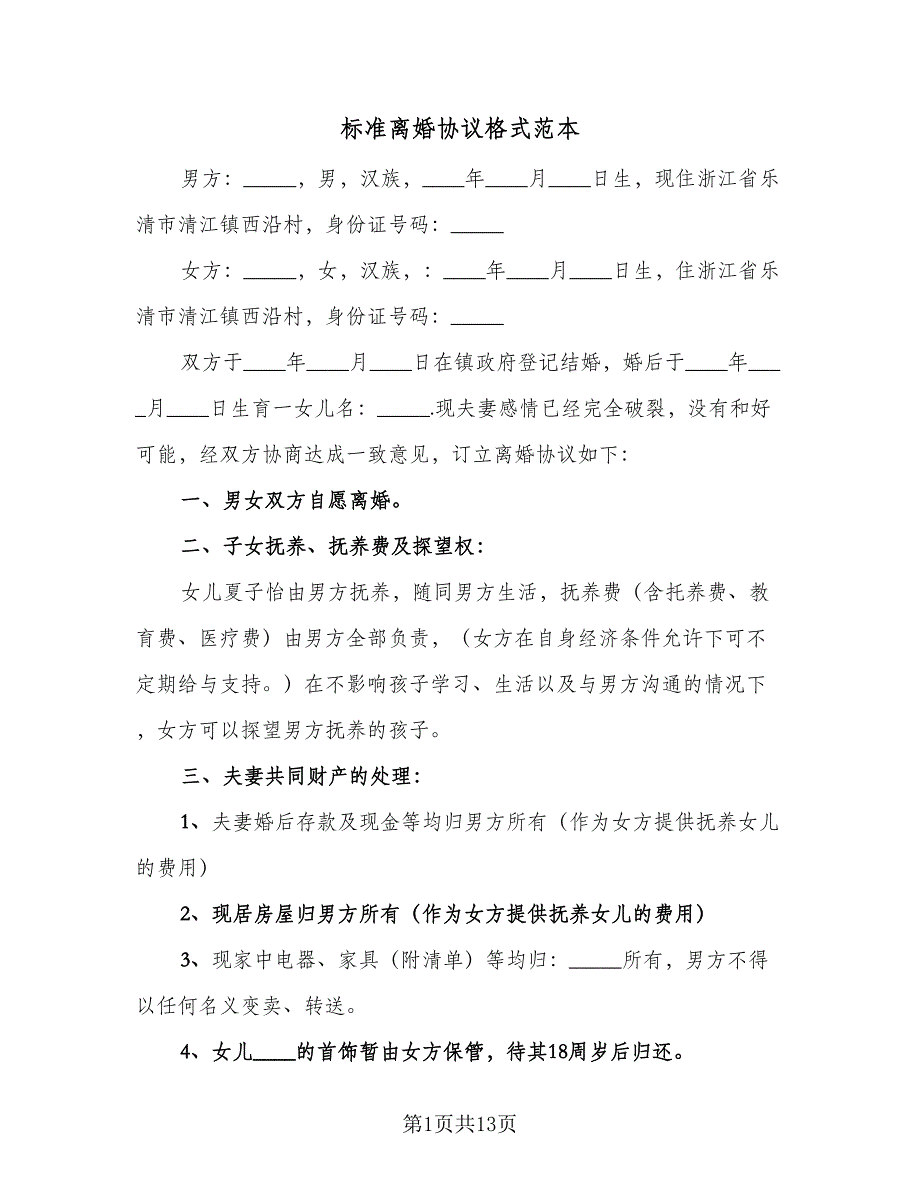 标准离婚协议格式范本
男方：_____，男，汉族，____年____月____日生，现住浙江省乐
清市清江镇西沿村，身份证号码：_____
女方：_____，女，汉族，：____年____月____日生，住浙江省乐
清市清江镇西沿村，身份证号码：_____
双方于____年____月____日在镇政府登记结婚，婚后于____年___
_月____日生育一女儿名：_____.现夫妻感情已经完全破裂，没有和好
可能，经双方协商达成一致意见，订立离婚协议如下：
一、男女双方自愿离婚。
二、子女抚养、抚养费及探望权：
女儿夏子怡由男方抚养，随同男方生活，抚养费（含托养费、教
育费、医疗费）由男方全部负责，（女方在自身经济条件允许下可不
定期给与支持。）在不影响孩子学习、生活以及与男方沟通的情况下
，女方可以探望男方抚养的孩子。
三、夫妻共同财产的处理：
1、夫妻婚后存款及现金等均归男方所有（作为女方提供抚养女儿
的费用）
2、现居房屋归男方所有（作为女方提供抚养女儿的费用）
3、现家中电器、家具（附清单）等均归：_____所有，男方不得
以任何名义变卖、转送。
4、女儿____的首饰暂由女方保管，待其18周岁后归还。
第1页共13页